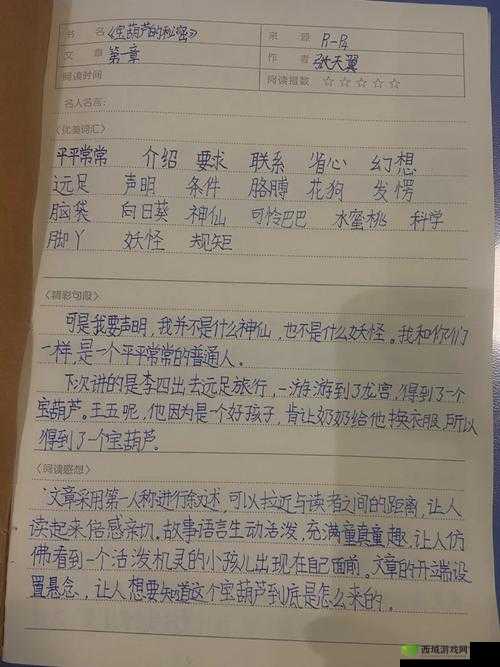 书 名 《宝葫芦的秘密》 来 源 P1-P4
文 章 第一章 作 者 张天翼
阅读时间 阅读指数 ☆☆☆☆☆
名人名言:
〈优美词汇〉
平平常常 介绍 要求 联系 省心 幻想
远足 声明 条件 胳膊 花狗 发愣
脑袋 向日葵 神仙 可怜巴巴 水蜜桃 科学
脚丫 妖怪 规矩
〈精彩句段〉
可是我要声明，我并不是什么神仙，也不是什么妖怪。我和你们
一样，是一个平平常常的普通人。
下次讲的是李四出去远足旅行，一游游到了龙宫，得到了一个
宝葫芦。王五呢，他因为是一个好孩子，肯让奶奶给他换衣服，所以
得到了一个宝葫芦。
〈阅读感想〉
文章采用第一人称进行叙述，可以拉近与读者之间的距离，让人
读起来倍感亲切。故事语言生动活泼，充满童真童趣，让人仿
佛看到一个活泼机灵的小孩儿出现在自己面前。文章的开端设
置悬念，让人想要知道这个宝葫芦到底是怎么来的。
西域游戏网